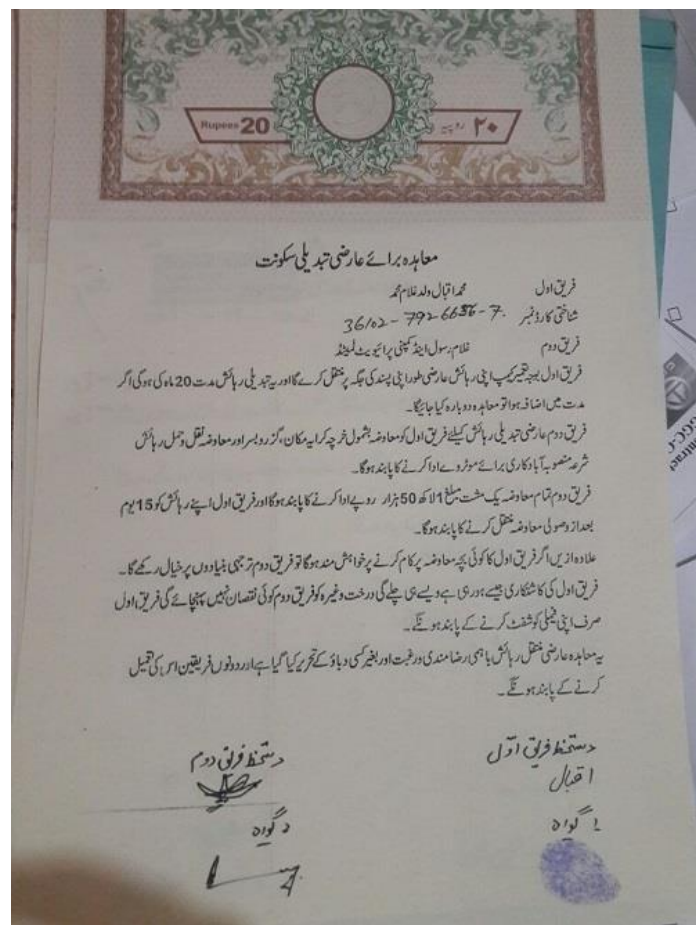 Rupees 20
۲۰ روپیہ
معاہدہ برائے عارضی تبدیلی سکونت
فریق اول محمد اقبال ولد غلام محمد
شناختی کارڈ نمبر 36102-7926636-7
فریق دوم غلام رسول اینڈ کمپنی پرائیویٹ لمیٹڈ
فریق اول بوجہ تعمیر کیمپ اپنی رہائش عارضی طور اپنی پسند کی جگہ پر منتقل کرے گا اور یہ تبدیلی رہائش مدت 20 ماہ کی ہوگی اگر
مدت میں اضافہ ہوا تو معاہدہ دوبارہ کیا جائیگا۔
فریق دوم عارضی تبدیلی رہائش کیلئے فریق اول کو معاوضہ بشمول خرچہ کرایہ مکان، گزر و بسر اور معاوضہ نقل و حمل رہائش
شرعہ منصوبہ آبادکاری برائے موٹروے ادا کرنے کا پابند ہوگا۔
فریق دوم تمام معاوضہ یک مشت مبلغ 1 لاکھ 50 ہزار روپے ادا کرنے کا پابند ہوگا اور فریق اول اپنے رہائش کو 15 یوم
بعد از وصولی معاوضہ منتقل کرنے کا پابند ہوگا۔
علاوہ ازیں اگر فریق اول کا کوئی بچہ معاوضہ پر کام کرنے پر خواہش مند ہوگا تو فریق دوم ترجیحی بنیادوں پر خیال رکھے گا۔
فریق اول کی کاشتکاری جیسے ہو رہی ہے ویسے ہی چلے گی درخت وغیرہ کو فریق دوم کوئی نقصان نہیں پہنچائے گی فریق اول
صرف اپنی فیملی کو شفٹ کرنے کے پابند ہونگے۔
یہ معاہدہ عارضی منتقل رہائش باہمی رضا مندی و رغبت اور بغیر کسی دباؤ کے تحریر کیا گیا ہے اور دونوں فریقین اس کی تعمیل
کرنے کے پابند ہونگے۔
دستخط فریق اول
دستخط فریق دوم
اقبال
1 گواہ
2 گواہ